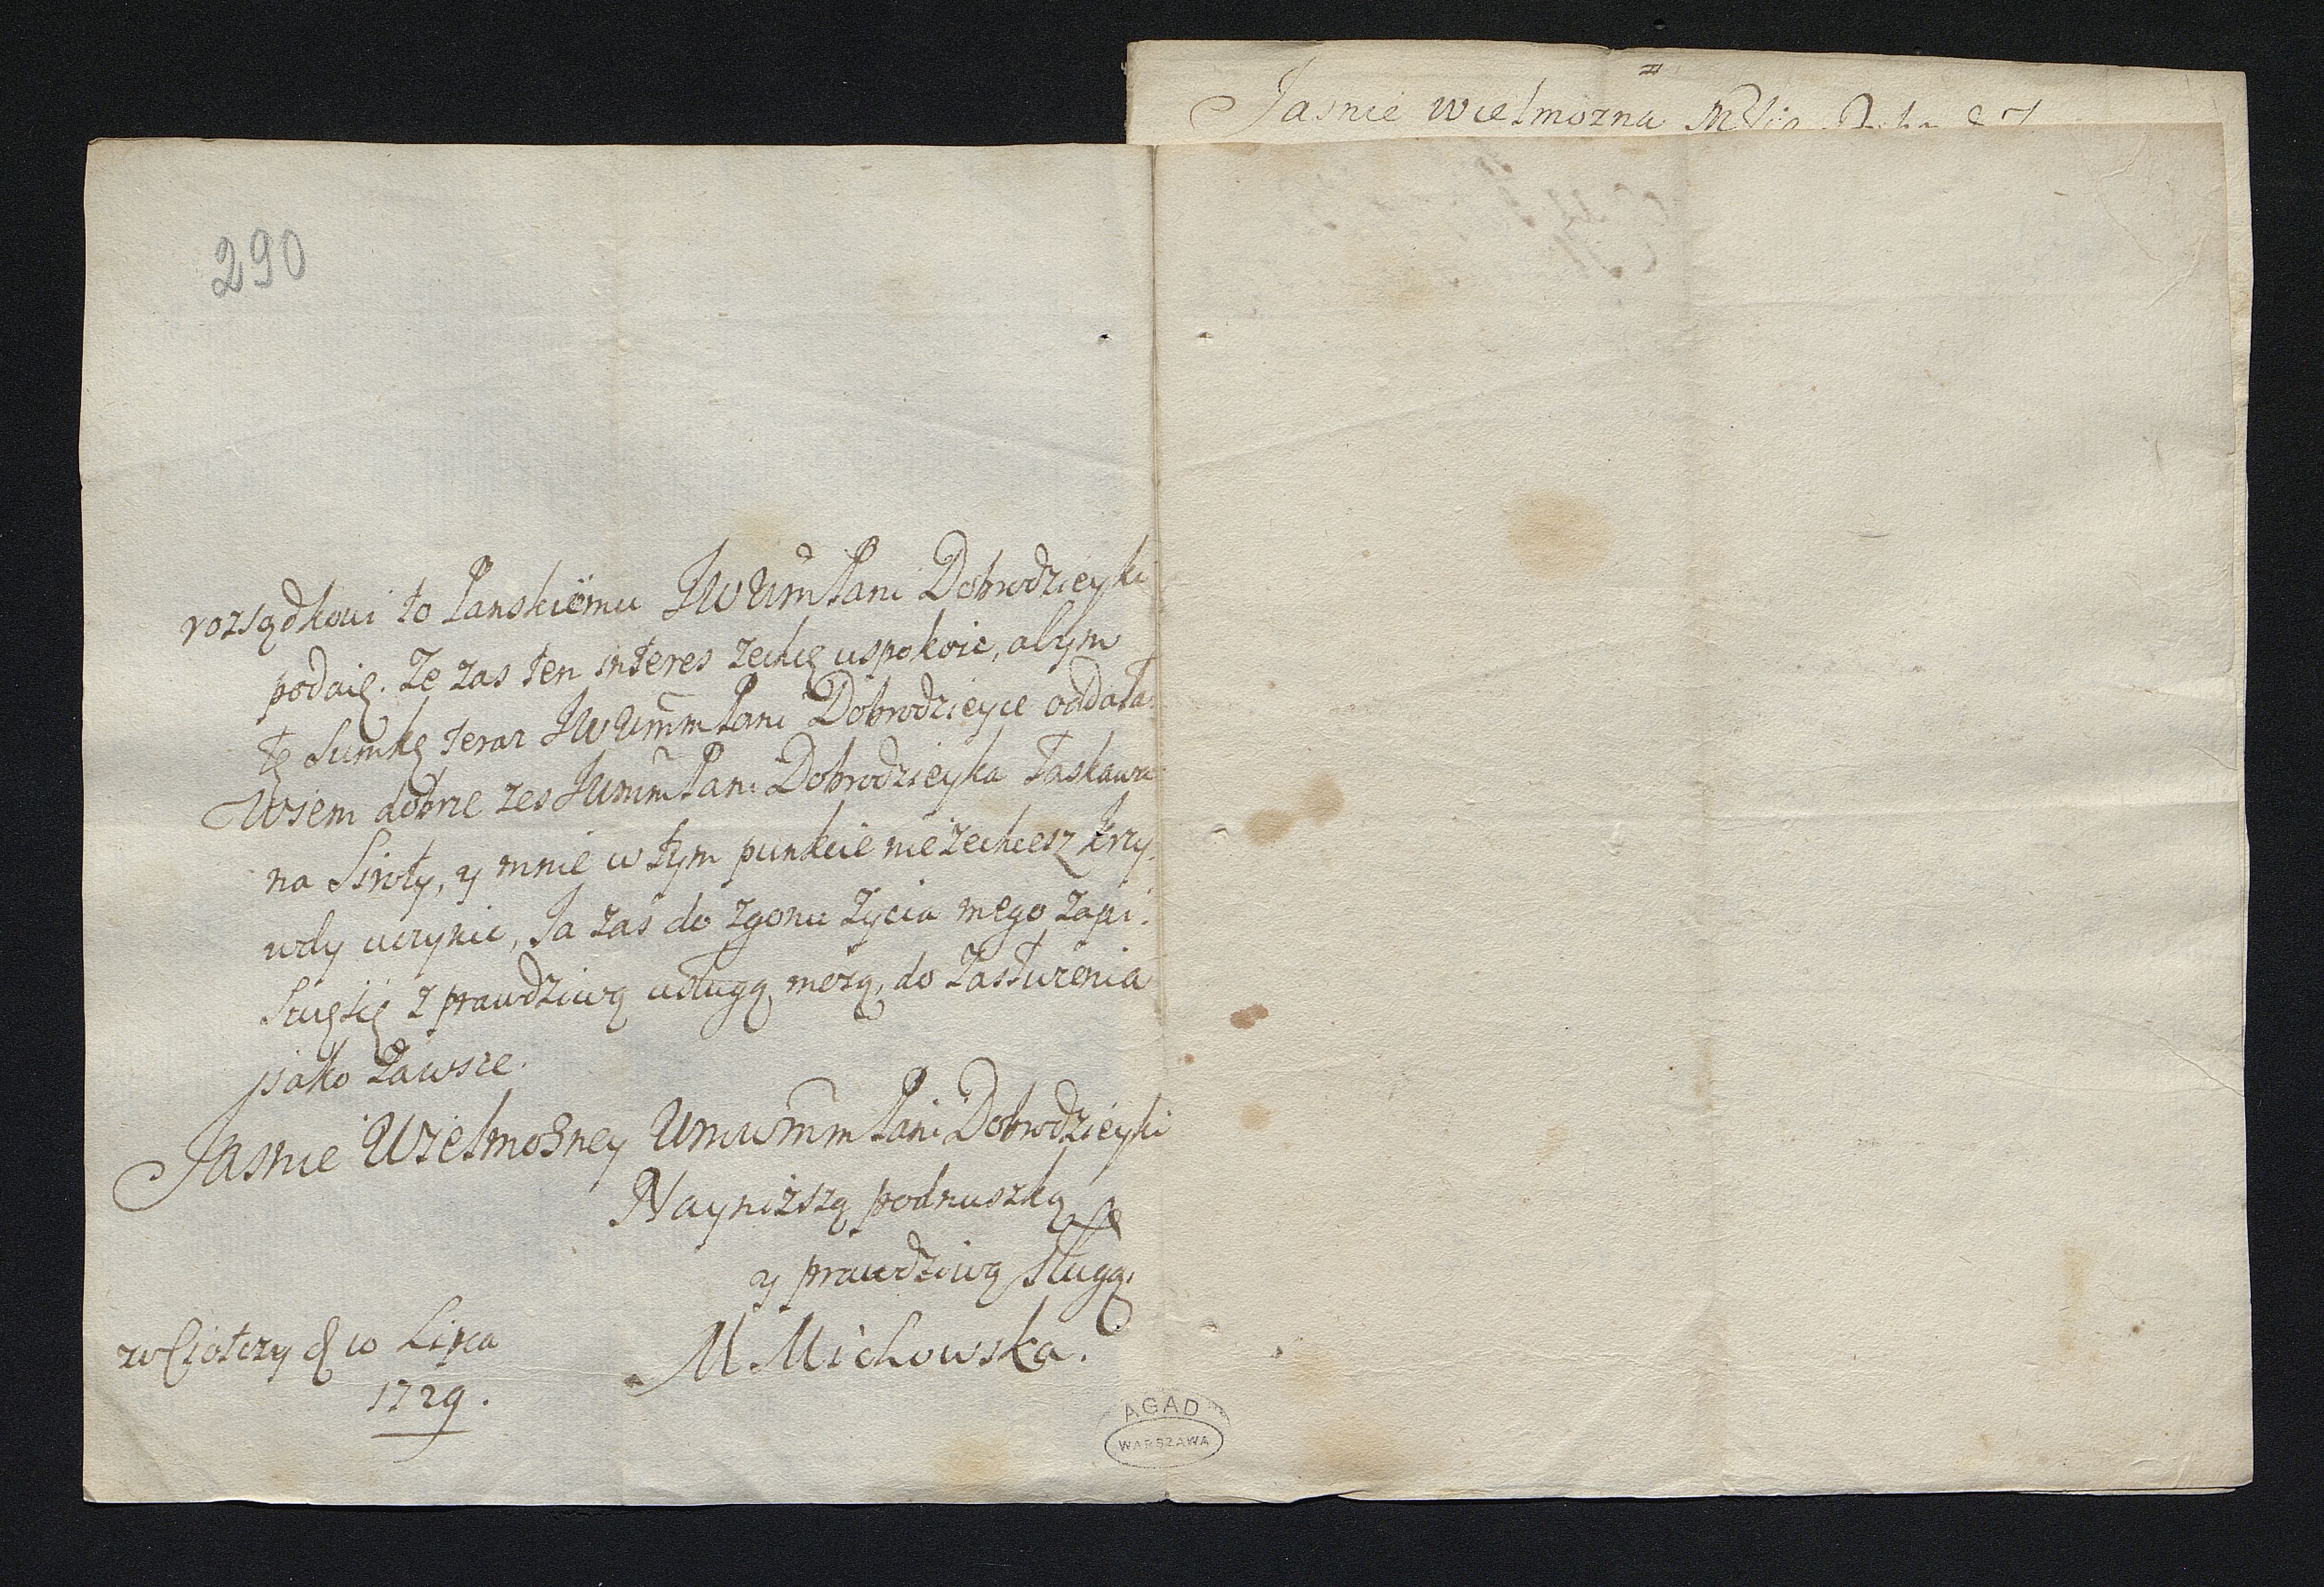 Jasnie wielmozna
290
rozsądkowi to Panskiemu JWWMPani Dobrodzieyki
podaię. Ze zas ten interes zechcę uspokoic, abym
tę Sumkę teraz JWWMMPani Dobrodzieyce oddała
Wiem dobrze zes JWWMMPani Dobrodzieyka łaskawa
na Siroty, y mnie w tym punkcie nie zechcesz krzy
wdy uczynic, Ja zas do zgonu zycia mego zapi:
suię się z prawdziwą usługą moią, do zasłuzenia
jako zawsze.
Jasnie Wielmozney WMWMMPani Dobrodzieyki
Nayniższą podnuszką
y prawdziwą sługą.
M Michowska.
d 10 Lipca
1729.
AGAD
WARSZAWA